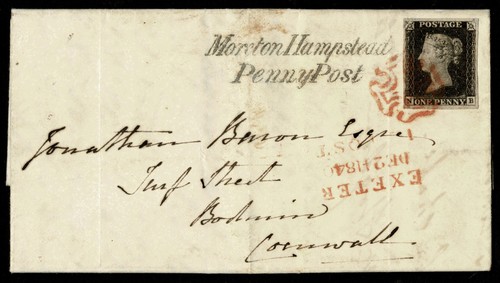 Moreton Hampstead
Penny Post
POSTAGE
N B
ONE PENNY
Jonathan Baron Esqre
Turf Street
Bodmin
Cornwall.
EXETER
DE 21 184